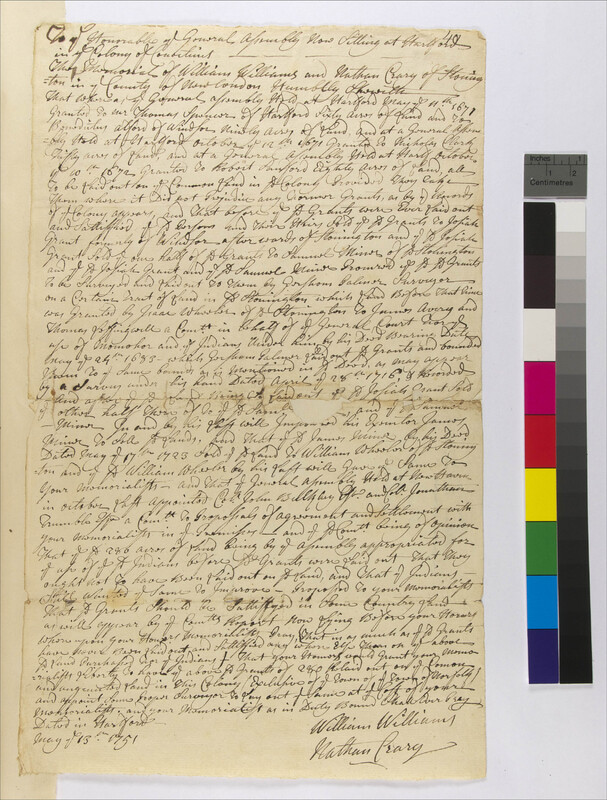 481
To ye Honorable ye General Assembly Now Sitting at Hartford
in ye Colony of Conecticut
The Memorial of William Williams and Nathan Crary of Stoning
=ton in ye County of New London Humbly Sheweth
That whereas ye General assembly Held at Hartford May ye 11th 1671
Granted to mr Thomas Spencer of Hartford Sixty acres of Land and To
Benedictus Alford of Windsor Ninety Acres of Land, and at a General Assem
bly Held at Hartford October ye 12th 1671 Granted To Nicholas Clark
Fifty acres of Land and at a General Assembly Held at Hartf October
ye 10th 1672 Granted to Robert Sanford Eighty Acres of Land, all
to be Laid out on ye Common Land in ye Colony Provided They Take
Them where it Did not Prejudice any Former Grants, as by ye Records
of ye Colony appears, and That before ye sd Grants were Ever Laid out
and Sattisfied ye sd Persons and their Heirs Sold ye sd Grants To Josiah
Grant formerly of Windsor after wards of Stonington and ye sd Josiah
Grant Sold ye one half of sd Grants to Samuel Miner of sd Stonington
and ye sd Josiah Grant and ye sd Samuel Miner Procured ye sd Grants
To be Surveyed and Laid out to Them by Gershom Palmer Surveyor
on a Certane tract of Land in sd Stonington which Land Before That time
was Granted by Isaac Wheeler of sd Stonington to James Avery and
Thomas Leffingwell a Comtt in behalf of ye General Court For ye
use of Momohor and ye Indians Under him, by his Deed Bearing Date
May ye 24th 1685 which Gershom Palmer Laid out sd Grants and bounded
Them To ye Same bounds as is mentioned in sd Deed, as may appear
by a Survey under his hand Dated April ye 28th 1716, & Recorded
And after ye sd Land being Laid out ye sd Josiah Grant Sold
ye other half There of To ye sd Saml
Miner In and by his Last will Impowred his Executor James
Miner To Sell sd Lands, And That ye sd James Miner by his Deed
Dated May ye 17th 1723 Sold ye sd Land To William Wheeler of sd Stoning
ton and ye sd William Wheeler by his Last will Gave ye Same To
Your Memorialists and That ye General Assembly Held at New Haven
in october Last appointed Col John Bulkley Esqr and Col Jonathan
Trumble Esqr a Comtt To Proposals of agreement and Settlement with
your Memorialists in ye Premises and ye sd Comtt being of opinion
That ye sd 280 acres of Land being by ye Assembly appropriated for
ye use of ye sd Indians before sd Grants were Laid out That They
ought Not To have Been Laid out on sd Land, and That ye Indians
Still Wanted ye Same To Improve Proposed to your Memorialists
That sd Grants Should be Sattisfyed in Some Country Land
as will appear by ye Comtts Report Now Lying Before your Honors
where upon your Honors Memorialists Pray That in as much as ye sd Grants
have Never Been Laid out and Sattisfied any where Else Than on ye above
sd Land Purchased for ye Indians That your Honors would Grant your Memo
rialists Liberty To have ye above sd 280 acres Laid out on ye Comon
and ungranted Land in This Colony
and appoint Some Proper Surveyor To Lay out ye Same at ye Cost of your
Memorialists, and your Memorialists as in Duty Bound Shall Ever Pray
Dated in Hartford
May ye 13th 1751
William Williams
Nathan Crary
Inches
1
2
Centimetres